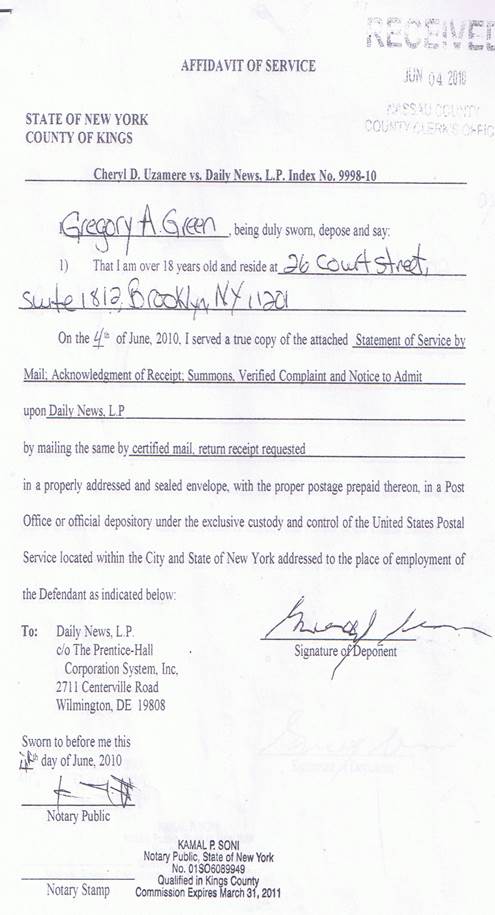 RECEIVED
JUN 04 2010
NASSAU COUNTY
COUNTY CLERK'S OFFIC
AFFIDAVIT OF SERVICE
STATE OF NEW YORK
COUNTY OF KINGS
Cheryl D. Uzamere vs. Daily News, L.P. Index No. 9998-10
Gregory A. Green, being duly sworn, depose and say:
1) That I am over 18 years old and reside at 26 Court Street,
Suite 1812, Brooklyn, NY, 11201
On the 4th of June, 2010, I served a true copy of the attached Statement of Service by
Mail; Acknowledgment of Receipt; Summons, Verified Complaint and Notice to Admit
upon Daily News, L.P
by mailing the same by certified mail, return receipt requested
in a properly addressed and sealed envelope, with the proper postage prepaid thereon, in a Post
Office or official depository under the exclusive custody and control of the United States Postal
Service located within the City and State of New York addressed to the place of employment of
the Defendant as indicated below:
To: Daily News, L.P.
c/o The Prentice-Hall
Corporation System, Inc.
2711 Centerville Road
Wilmington, DE 19808
Signature of Deponent
Sworn to before me this
4th day of June, 2010
Notary Public
KAMAL P. SONI
Notary Public, State of New York
No. 01SO6089949
Qualified in Kings County
Commission Expires March 31, 2011
Notary Stamp